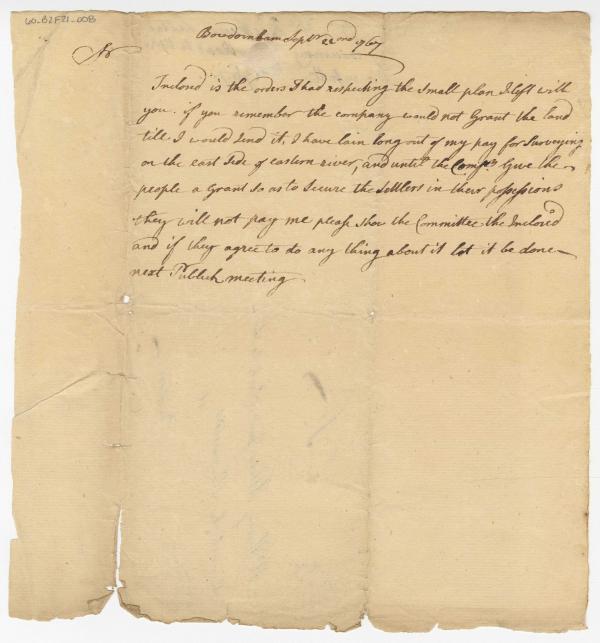 60-B2F21-008
Bowdornham Septr 22nd 1767
Sr
Inclosed is the orders I had respecting the Small plan I left with
you. if you remember the company would not Grant the land
till I would Send it, I have lain long out of my pay for Surveying
on the east Side of eastern river, and until the Compy Give the
people a Grant So as to Secure the Settlers in their possessions
they will not pay me please Shew the Committee the Inclos'd
and if they agree to do any thing about it let it be done
next Publick meeting